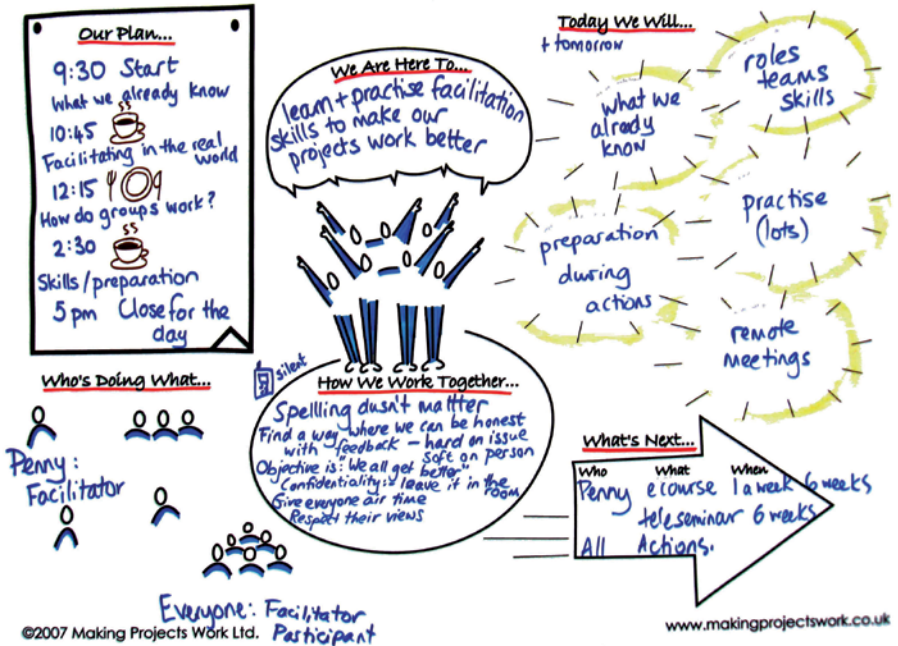 Our Plan...
9:30 Start
What we already know
10:45
Facilitating in the real
world
12:15
How do groups work?
2:30
Skills/preparation
5pm Close for the
day
We Are Here To...
learn + practise facilitation
skills to make our
projects work better
Today We Will...
+ tomorrow
what we
already
know
roles
teams
skills
preparation
during
actions
practise
(lots)
remote
meetings
Who's Doing What...
Penny:
Facilitator
Everyone: Facilitator
Participant
silent
How We Work Together...
Spelling dusn't mattter
Find a way where we can be honest
with feedback – hard on issue
soft on person
Objective is: "We all get better"
Confidentiality: leave it in the
room
Give everyone air time
Respect their views
What's Next...
Who What When
Penny ecourse 1 a week 6 weeks
teleseminar 6 weeks
All Actions.
©2007 Making Projects Work Ltd.
www.makingprojectswork.co.uk